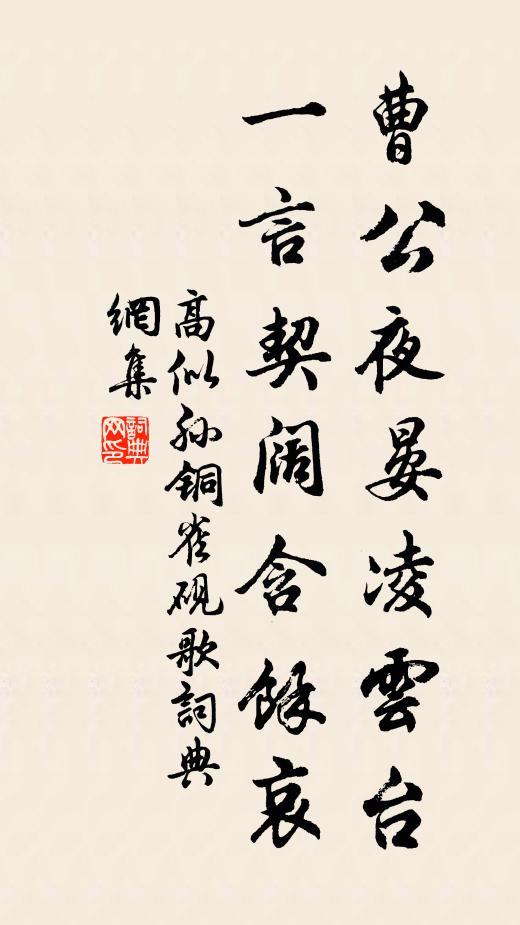 曹公夜宴凌雲台
一言契阔含餘哀
高似孙铜雀砚歌詞典
網集
詞典
网印